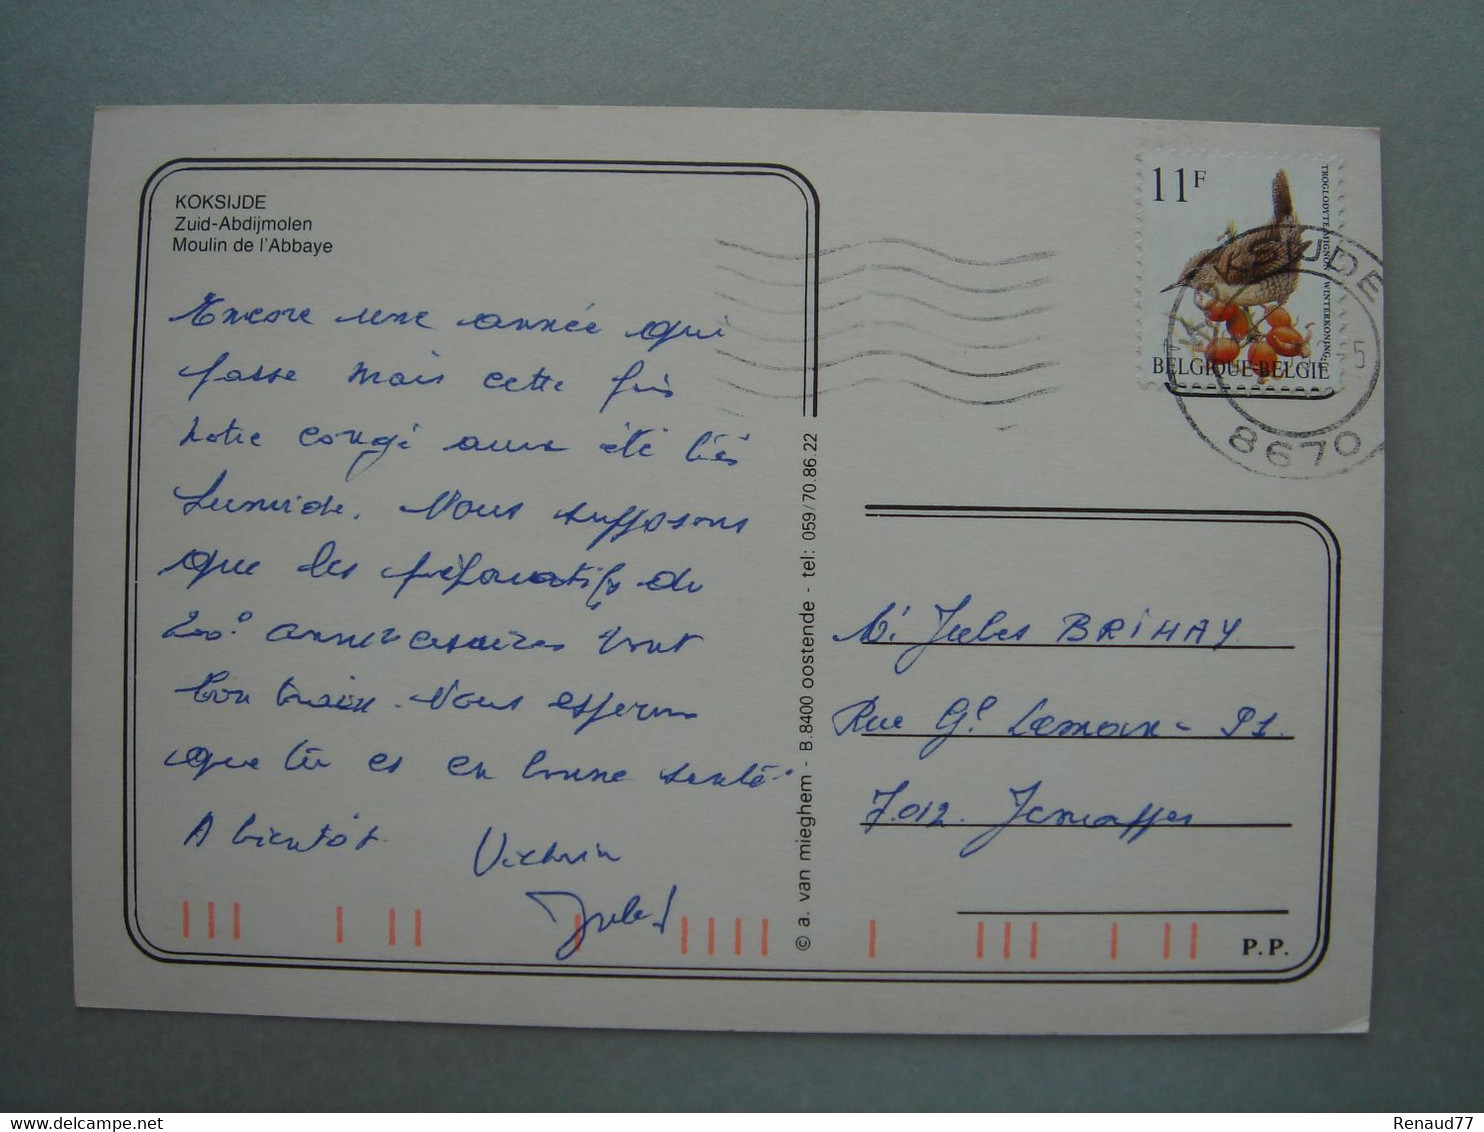 KOKSIJDE
Zuid-Abdijmolen
Moulin de l'Abbaye
Encore une année qui
passe mais cette fois
notre congé aura été très
humide. Nous supposons
que les préparatifs du
200e anniversaires vont
bon train. Nous espérons
que tu es en bonne santé.
A bientôt.
© a. van mieghem - B.8400 oostende - tel: 059/70.86.22
11F
TROGLODYTE MIGNON WINTERKONING
BELGIQUE-BELGIE
KOKSIJDE
8670
Mr Jules BRIHAY
Rue Gl Leman - 91
7012. Jemappes
P.P.
Renaud77